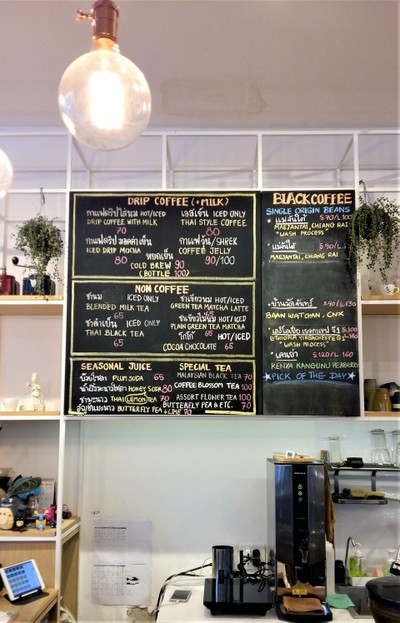 DRIP COFFEE (+MILK)
กาแฟดริปใส่นม HOT/ICED
DRIP COFFEE WITH MILK
70
เอสเย็น ICED ONLY
THAI STYLE COFFEE
80
กาแฟดริป มอคค่าเย็น
ICED DRIP MOCHA
80
กาแฟวุ้น/SHREK
COFFEE JELLY
90/100
หยดเย็น
COLD BREW 90
(BOTTLE 100)
NON COFFEE
ชานม ICED ONLY
BLENDED MILK TEA
65
ชาดำเย็น ICED ONLY
THAI BLACK TEA
65
ชาเขียวนม HOT/ICED
GREEN TEA MATCHA LATTE
65
ชาเขียวไม่นม HOT/ICED
PLAIN GREEN TEA MATCHA
โกโก้ 65 HOT/ICED
COCOA CHOCOLATE 65
SEASONAL JUICE
บ๊วยโซดา PLUM SODA 65
น้ำผึ้งมะนาวโซดา HONEY SODA 80
ชามะนาว THAI LEMON TEA 70
อัญชันมะนาว BUTTERFLY PEA + LIME 70
SPECIAL TEA
MALAYSIAN BLACK TEA 70
COFFEE BLOSSOM TEA 100
ASSORT FLOWER TEA 100
BUTTERFLY PEA & ETC. 70
BLACK COFFEE
SINGLE ORIGIN BEANS
แม่จันใต้ S 70/L 100
MAEJANTAI, CHIANG RAI
"WASH PROCESS"
แม่จันใต้
MAEJANTAI, CHIANG RAI
บ้านวัดจันทร์
BAAN WATCHAN, CNX
ETHIOPIA YIRGACHEFFE
"WASH PROCESS"
เคนย่า S 120/L 160
KENYA KANGUNU PEABERRY
PICK OF THE DAY